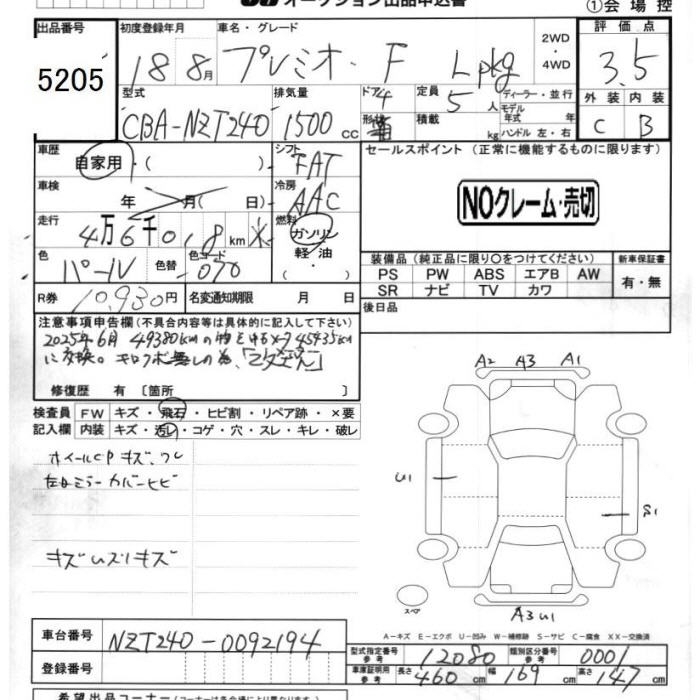 オークション出品申込書
①会場控
出品番号 初度登録年月 車名・グレード 評価点
5205 18 8月 プレミオ・F Lpkg 2WD・4WD 3.5
型式 排気量 ドア 4 定員 5人 ディーラー・並行 外装 内装
CBA-NZT240 1500cc 形状 積載 kg モデル年式 年 ハンドル 左・右 C B
車歴 自家用・( ) シフト FAT セールスポイント (正常に機能するものに限ります)
車検 年 月( 日) 冷房 AAC
NOクレーム・売切
走行 4万6千018km 燃料 ガソリン
軽油
・( )
色 パール 色替 色コード 070
装備品(純正品に限り○をつけてください) 新車保証書
PS PW ABS エアB AW 有・無
SR ナビ TV カワ
R券 10,930円 名変通知期限 月 日 後日品
注意事項申告欄(不具合内容等は具体的に記入して下さい)
2025年6月 49380kmの時
に交換。
修復歴 有 〔箇所 〕
検査員 FW キズ・飛石・ヒビ割・リペア跡・×要
記入欄 内装 キズ・汚レ・コゲ・穴・スレ・キレ・破レ
A2 A3 A1
ホイールCPキズ、ワレ
左Dミラーカバーヒビ
U1
S1
キズ、スリキズ
スペア
A3 U1
A-キズ E-エクボ U-凹み W-補修跡 S-サビ C-腐食 XX-交換済
車台番号 NZT240-0092194
型式指定番号 参考 12080 類別区分番号 参考 0001
登録番号
車庫証明用 参考 長さ 460cm 幅 169cm 高さ 147cm
希望出品コーナー